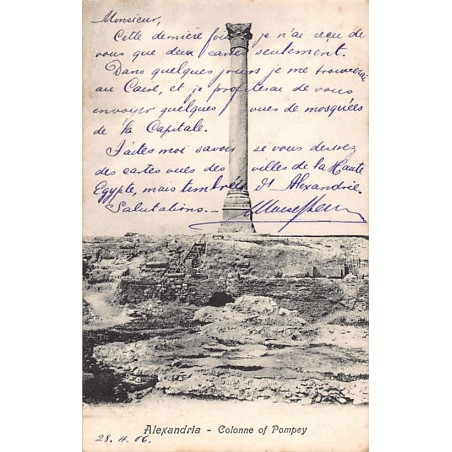 Monsieur,
Cette dernière fois je n'ai reçu de
vous que deux cartes seulement.
Dans quelques jours je me trouverai
au Caire, et je profiterai de vous
envoyer quelques vues de mosquées
de la Capitale.
Faites moi savoir si vous desirez
des cartes vues des villes de la Haute
Egypte, mais timbrées d'Alexandrie.
Salutations.-
Alexandria - Colonne of Pompey
28.4.06.